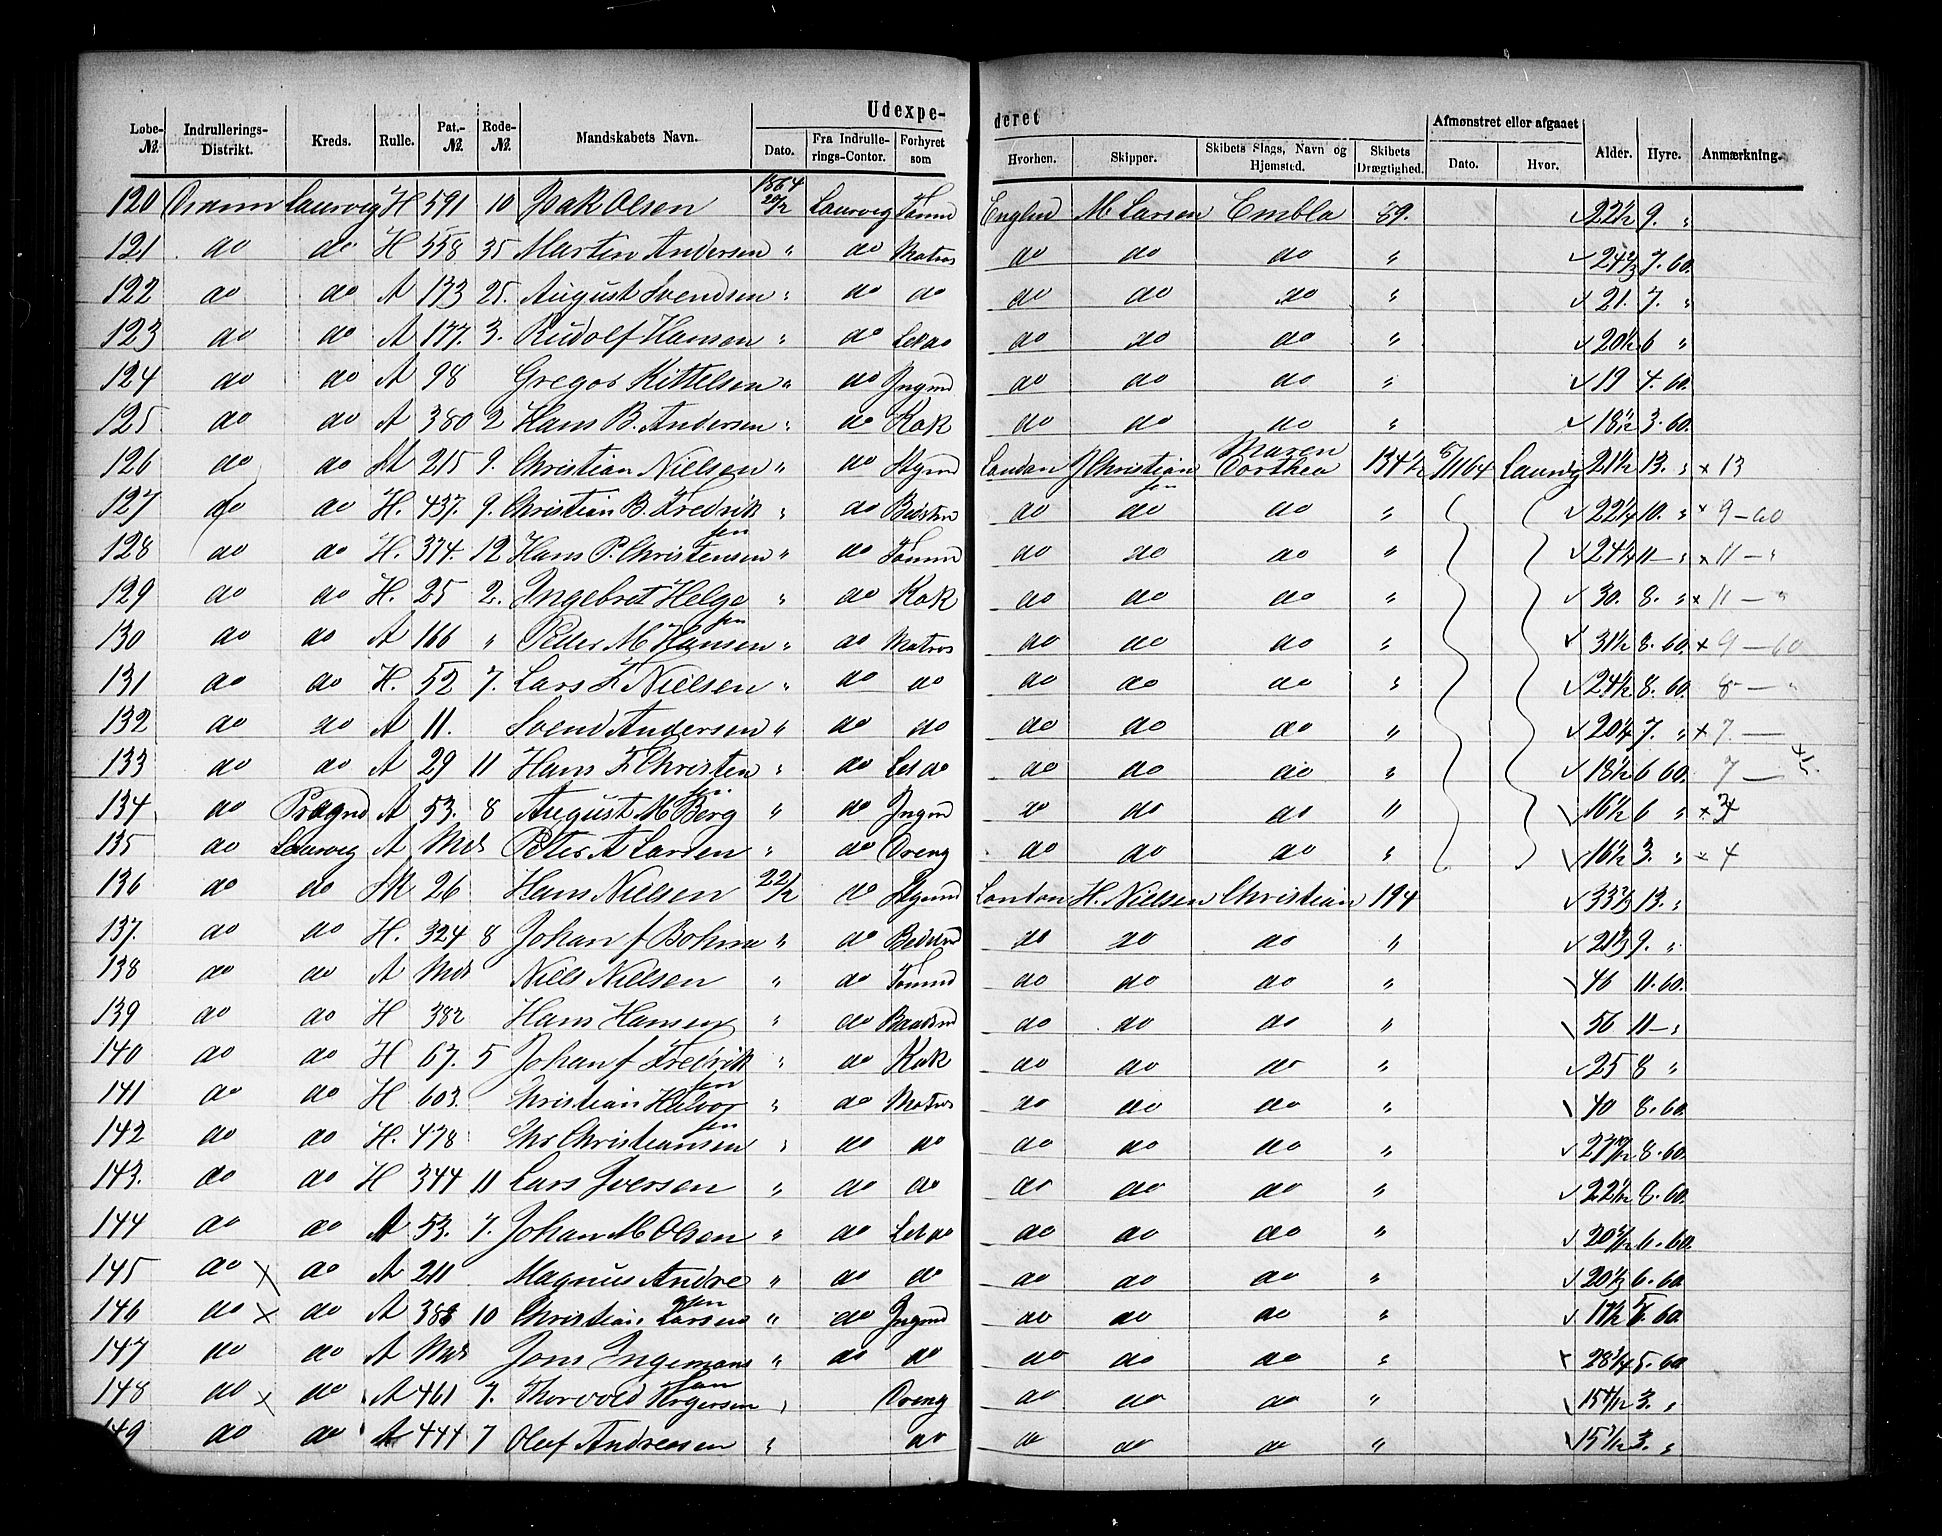 Udexpe-
deret
Løbe-№ Indrullerings-Distrikt. Kreds. Rulle. Pat.-№ Rode-№ Mandskabets Navn. Dato. Fra Indrulle-rings-Contor. Forhyret som Hvorhen. Skipper. Skibets Slags, Navn og Hjemsted. Skibets Drægtighed. Afmønstret eller afgaaet Dato. Hvor. Alder. Hyre. Anmærkning.
120 Dramn Laurvig H 591 10 Isak Olsen 1864 20/2 Laurvig Tømmd Englnd M Larsen Embla 89. 22½ 9. "
121 do do H 558 35 Martin Andersen " do Matros do do do " 24⅔ 7. 60.
122 do do A 173 25. August Svendsen " do do do do do " 21. 7. "
123 do do A 177. 3. Rudolf Hansen " do Let do do do do " 20½ 6 "
124 do do A 98 Gregos Kittelsen " do Jngmd do do do " 19 4. 60.
125 do do A 380 2 Hans B. Andersen " do Kok do do do " 18½ 3. 60.
126 do do 215 9. Christian Nielsen " do Stymd London J Christiansen Maren Dorthea 134½ 8/11 64 Laurvig 21½ 13. " x 13
127 do do H. 437. 9. Christian B. Fredriksen " do Bedstm do do do " 22¼ 10. " x 9-60
128 do do H. 374. 12 Hans P. Christensen " do Tømmd do do do " 24¼ 11 - " x 11 - "
129 do do H. 25 2. Ingebret Helgesen " do Kok do do do " 30. 8. " x 11 - "
130 do do A 166 " Peder M Hansen " do Matros do do do " 31½ 8. 60. x 9 - 60
131 do do H. 52 7. Lars F. Nielsen " do do do do do " 24½ 8. 60. 8 - "
132 do do A 11. Svend Andersen " do do do do do " 20¼ 7. " x 7 -
133 do do A 29 11 Hans F. Christensen " do Let do do do do " 18½ 6 60. 7 -
134 do Pragnd A 53. 8 August M Berg " do Jngmd do do do " 16½ 6 " x
135 do Laurvig A Mdr Peter A Larsen " do Dreng do do do " 16½ 3. " x 4
136 do do 26 Hans Nielsen 22/2 do Stymd London H. Nielsen Christian 194 33⅔ 13. "
137. do do H. 324 8 Johan f Bohm " do Bedstmd do do do " 21⅔ 9. "
138 do do A Mdr Niels Nielsen " do Tømmd do do do " 46 11. 60.
139 do do H 382 Hans Hansen " do Baadsmd do do do " 56 11 - "
140 do do H 67. 5 Johan f Fredriksen " do Kok do do do " 25 8 "
141 do do H 603. Christian Halvorsen " do Matros do do do " 40 8. 60.
142 do do H. 478 Chr Christiansen " do do do do do " 8. 60.
143. do do H 344 11 Lars Iversen " do do do do do " 8. 60.
144 do do A 53. 7. Johan M Olsen " do Let do do do do " 6. 60.
145 do x do A 211 Magnus Andresen " do do do do do " 20⅓ 6. 60.
146 do x do A 388 10 Christian Larsen " do Jngmd do do do " 17½ 5. 60.
147 do do A Mdr Jons Ingemansson " do do do do do " 28¼ 5. 60
148 do x do A 461 7. Thorvold Aagersen " Dreng do do do " 3. "
149 do do A 444 7 Oluf Andresen " do do do do " 3. "